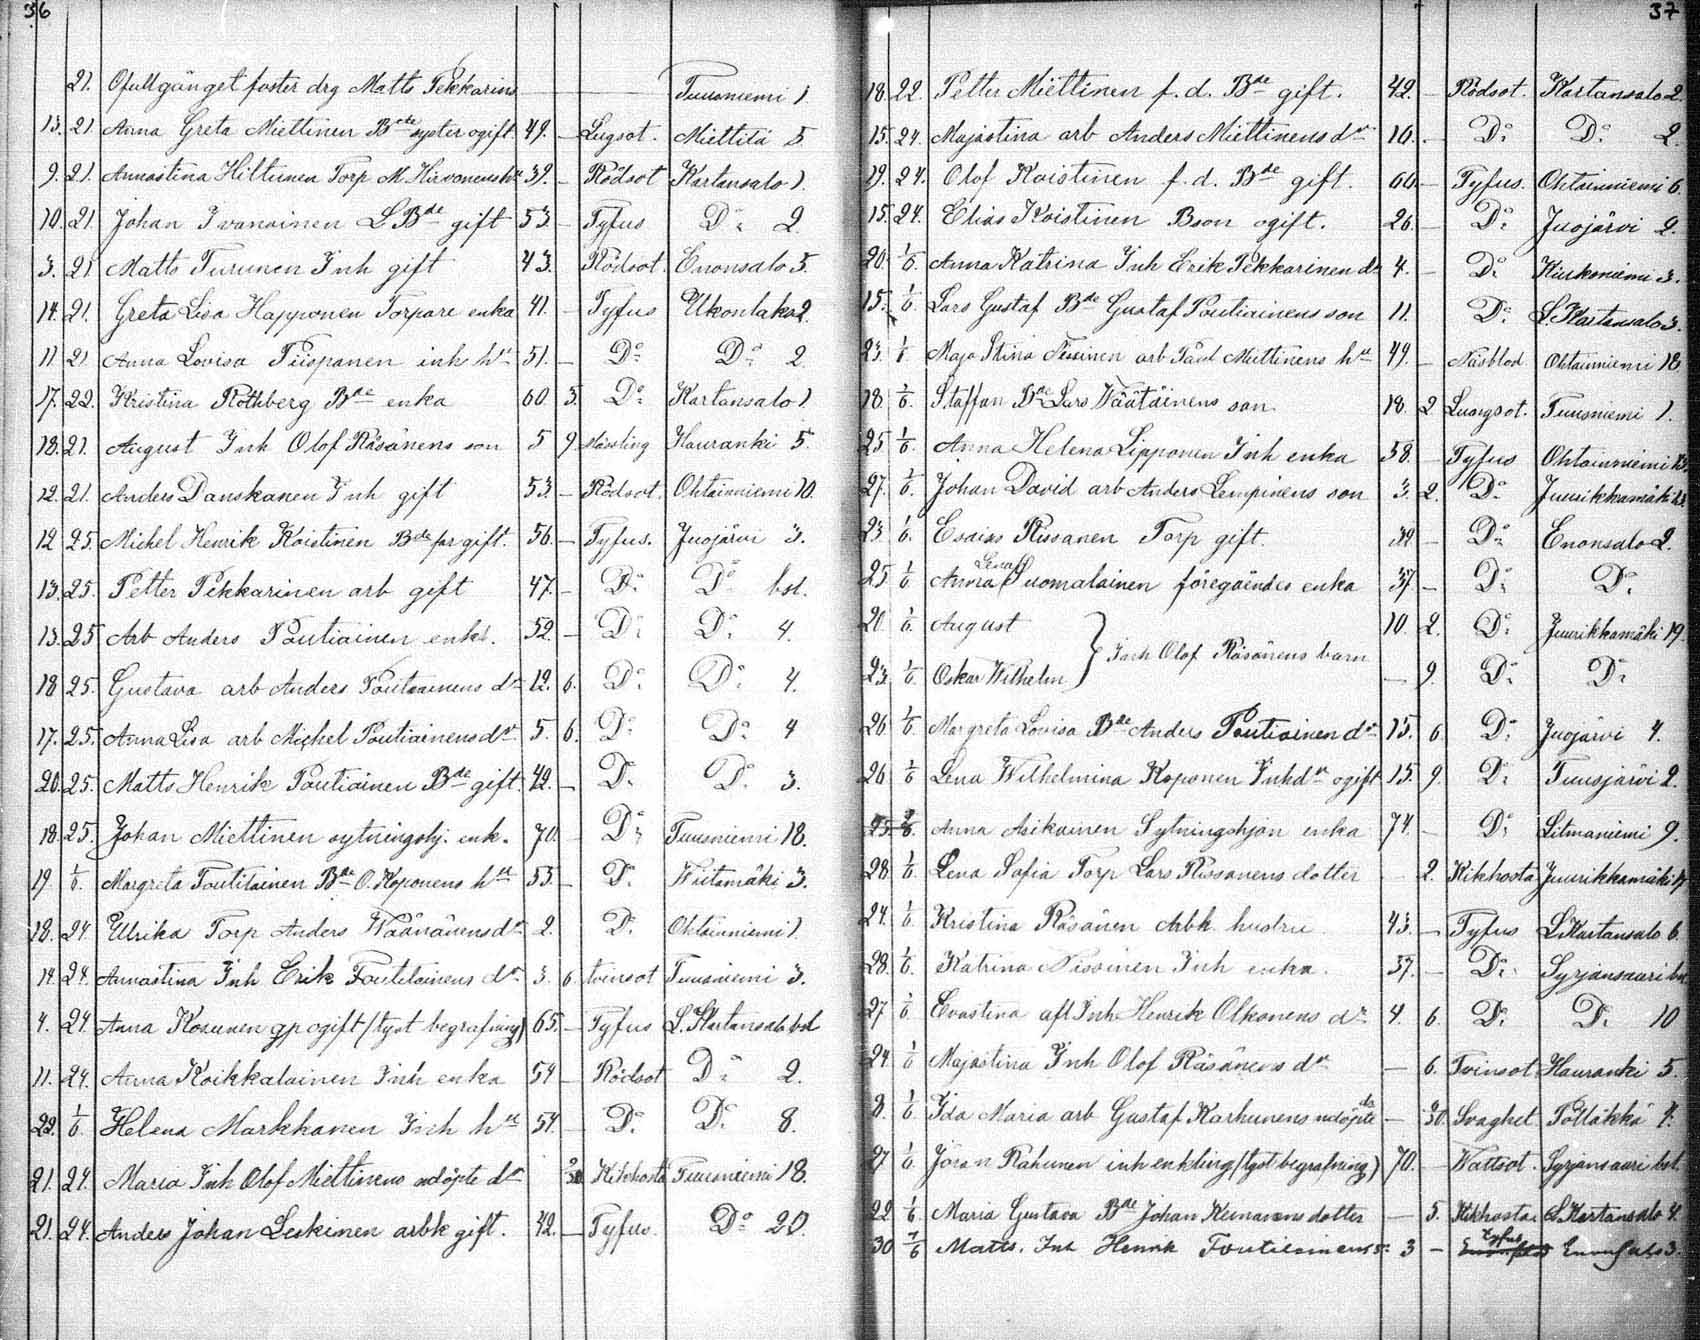 36
21. Ofullgånget foster drg Matts Pekkarins — Tuusniemi 1
13. 21 Anna Greta Miettinen Bde syster ogift 49. — Lugsot. Miettilä 5.
9. 21. Annastina Hiltunen Torp M Hirvonens hu 39. — Rödsot Kartansalo 1.
10. 21. Johan Ivanainen L Bde gift 53. — Tyfus Do 2.
3. 21 Matts Turunen Inh gift 43. Rödsot. Enonsalo 3.
14. 21. Greta Lisa Happonen Torpare enka 41. — Tyfus Ukonlaks 2.
11 21 Anna Lovisa inh hu 51. — Do Do 2
17. 22. Kristina Rothberg Bde enka 60 3. Do Kartansalo 1.
18. 21. August Inh Olof Räsänens son 5 9. Mässling Hauranki 5.
12. 21. Anders Danskanen Inh gift 53. — Rödsot. Ohtainniemi 10.
12 25. Michel Henrik Koistinen Bde gift. 56. — Tyfus. Juojärvi 3.
13. 25. Petter Pekkarinen arb gift 47. — Do Do bst.
13. 25 Arb Anders Poutiainen enkl. 52. — Do Do 4.
18 25. Gustava arb Anders Poutiainens dr 12. 6. Do Do 4.
17. 25. Anna Lisa arb Michel Poutiainens dr 5. 6. Do Do 4
20. 25. Matts Henrik Poutiainen Bde gift. 42. — Do Do 3.
18. 25. Johan Miettinen sytningshj. enk. 70. — Do Tuusniemi 18.
19 1/6. Margreta Toutilainen Bde O. Koponens hu 53. — Do Wiitamäki 3.
18. 24. Ulrika Torp Anders Wäänänens dr 2. Do Ohtainniemi 1.
14 24. Annastina Inh Erik Toutilainens dr 3. 6. tvinsot Tuusniemi 3.
4. 24. Anna Kosunen gp ogift (tyst begrafning) 65. — Tyfus L. Kartansalo bst
11. 24. Anna Koikkalainen Inh enka 54 — Rödsot Do 2.
22. 1/6. Helena Markkanen Inh hu 54. — Do Do 8.
21. 24. Maria Inh Olof Miettinens odöpte dr Kikhosta Tuusniemi 18.
21. 24. Anders Johan Leskinen arbk gift. 42. — Tyfus. Do 20.
37
18. 22. Petter Miettinen f.d. Bde gift. 42. — Rödsot. Kartansalo 2.
15. 24. Majastina arb Anders Miettinens dr 10. — Do Do 2.
19. 24. Olof Koistinen f.d. Bde gift. 60 — Tyfus. Ohtainniemi 6.
15. 24. Elias Koistinen Bson ogift. 26. — Do Juojärvi 2.
20. 1/6. Anna Katrina Inh Erik Pekkarinen dr 4. — Do 3.
15. 1/6 Lars Gustaf Bde Gustaf Poutiainens son 11. Do L. Kartansalo 3.
23. 1/6 Maja Stina arb Paul Miettinens hu 49. — Näsblod Ohtainniemi 18.
18. 1/6. Staffan Bde Lars Väätäinens son 18. 2 Lungsot. Tuusniemi 1.
25 1/6. Anna Helena Lipponen Inh enka 58. — Tyfus Ohtainniemi 13.
27. 1/6. Johan David arb Anders Lempinens son 3. 2. Do Juurikkamäki
23 1/6. Esaias Rissanen Torp gift. 39 — Do Enonsalo 2.
25 1/6 Anna Lena Suomalainen föregåendes enka 37 — Do Do
20 1/6. August } Inh Olof Räsänens barn 10. 2. Do Juurikkamäki 19.
23. 1/6. Oskar Wilhelm — 9. Do Do
26 1/6. Margreta Lovisa Bde Anders Poutiainen dr 15. 6. Do Juojärvi 4.
26 1/6 Lena Wilhelmina Koponen Inhdr ogift 15. 9. Do Tuusjärvi 2.
25 2/6. Anna Asikainen Sytningshjon enka 74. — Do Litmaniemi 9.
28 1/6. Lena Sofia Torp Lars Rissanens dotter — 2. Kikhosta Juurikkamäki
24. 1/6. Kristina Räsänen Arbk hustru 43. — Tyfus L Kartansalo 6.
28. 1/6. Katrina Inh enka. 37. — Do Syrjänsaari bst
27 1/6. Evastina afl Inh Henrik Olkonens dr 4. 6. Do Do 10
24. 1/6 Majastina Inh Olof Räsänens dr — 6. Tvinsot Hauranki 5.
8. 1/6 Ida Maria arb Gustaf Karhunens nödöpte dr — 2/30. Svaghet Pölläkkä 4.
27 1/6. Johan Rahunen inh enkling (tyst begrafning) 70. — Wattsot. Syrjänsaari bst.
22 1/6. Maria Gustava Bde Johan dotter — 5. Kikhosta L Kartansalo 4.
30 7/6 Matts. Inh Henrik Toutilainens s. 3 — Tyfus Enonsalo 3.